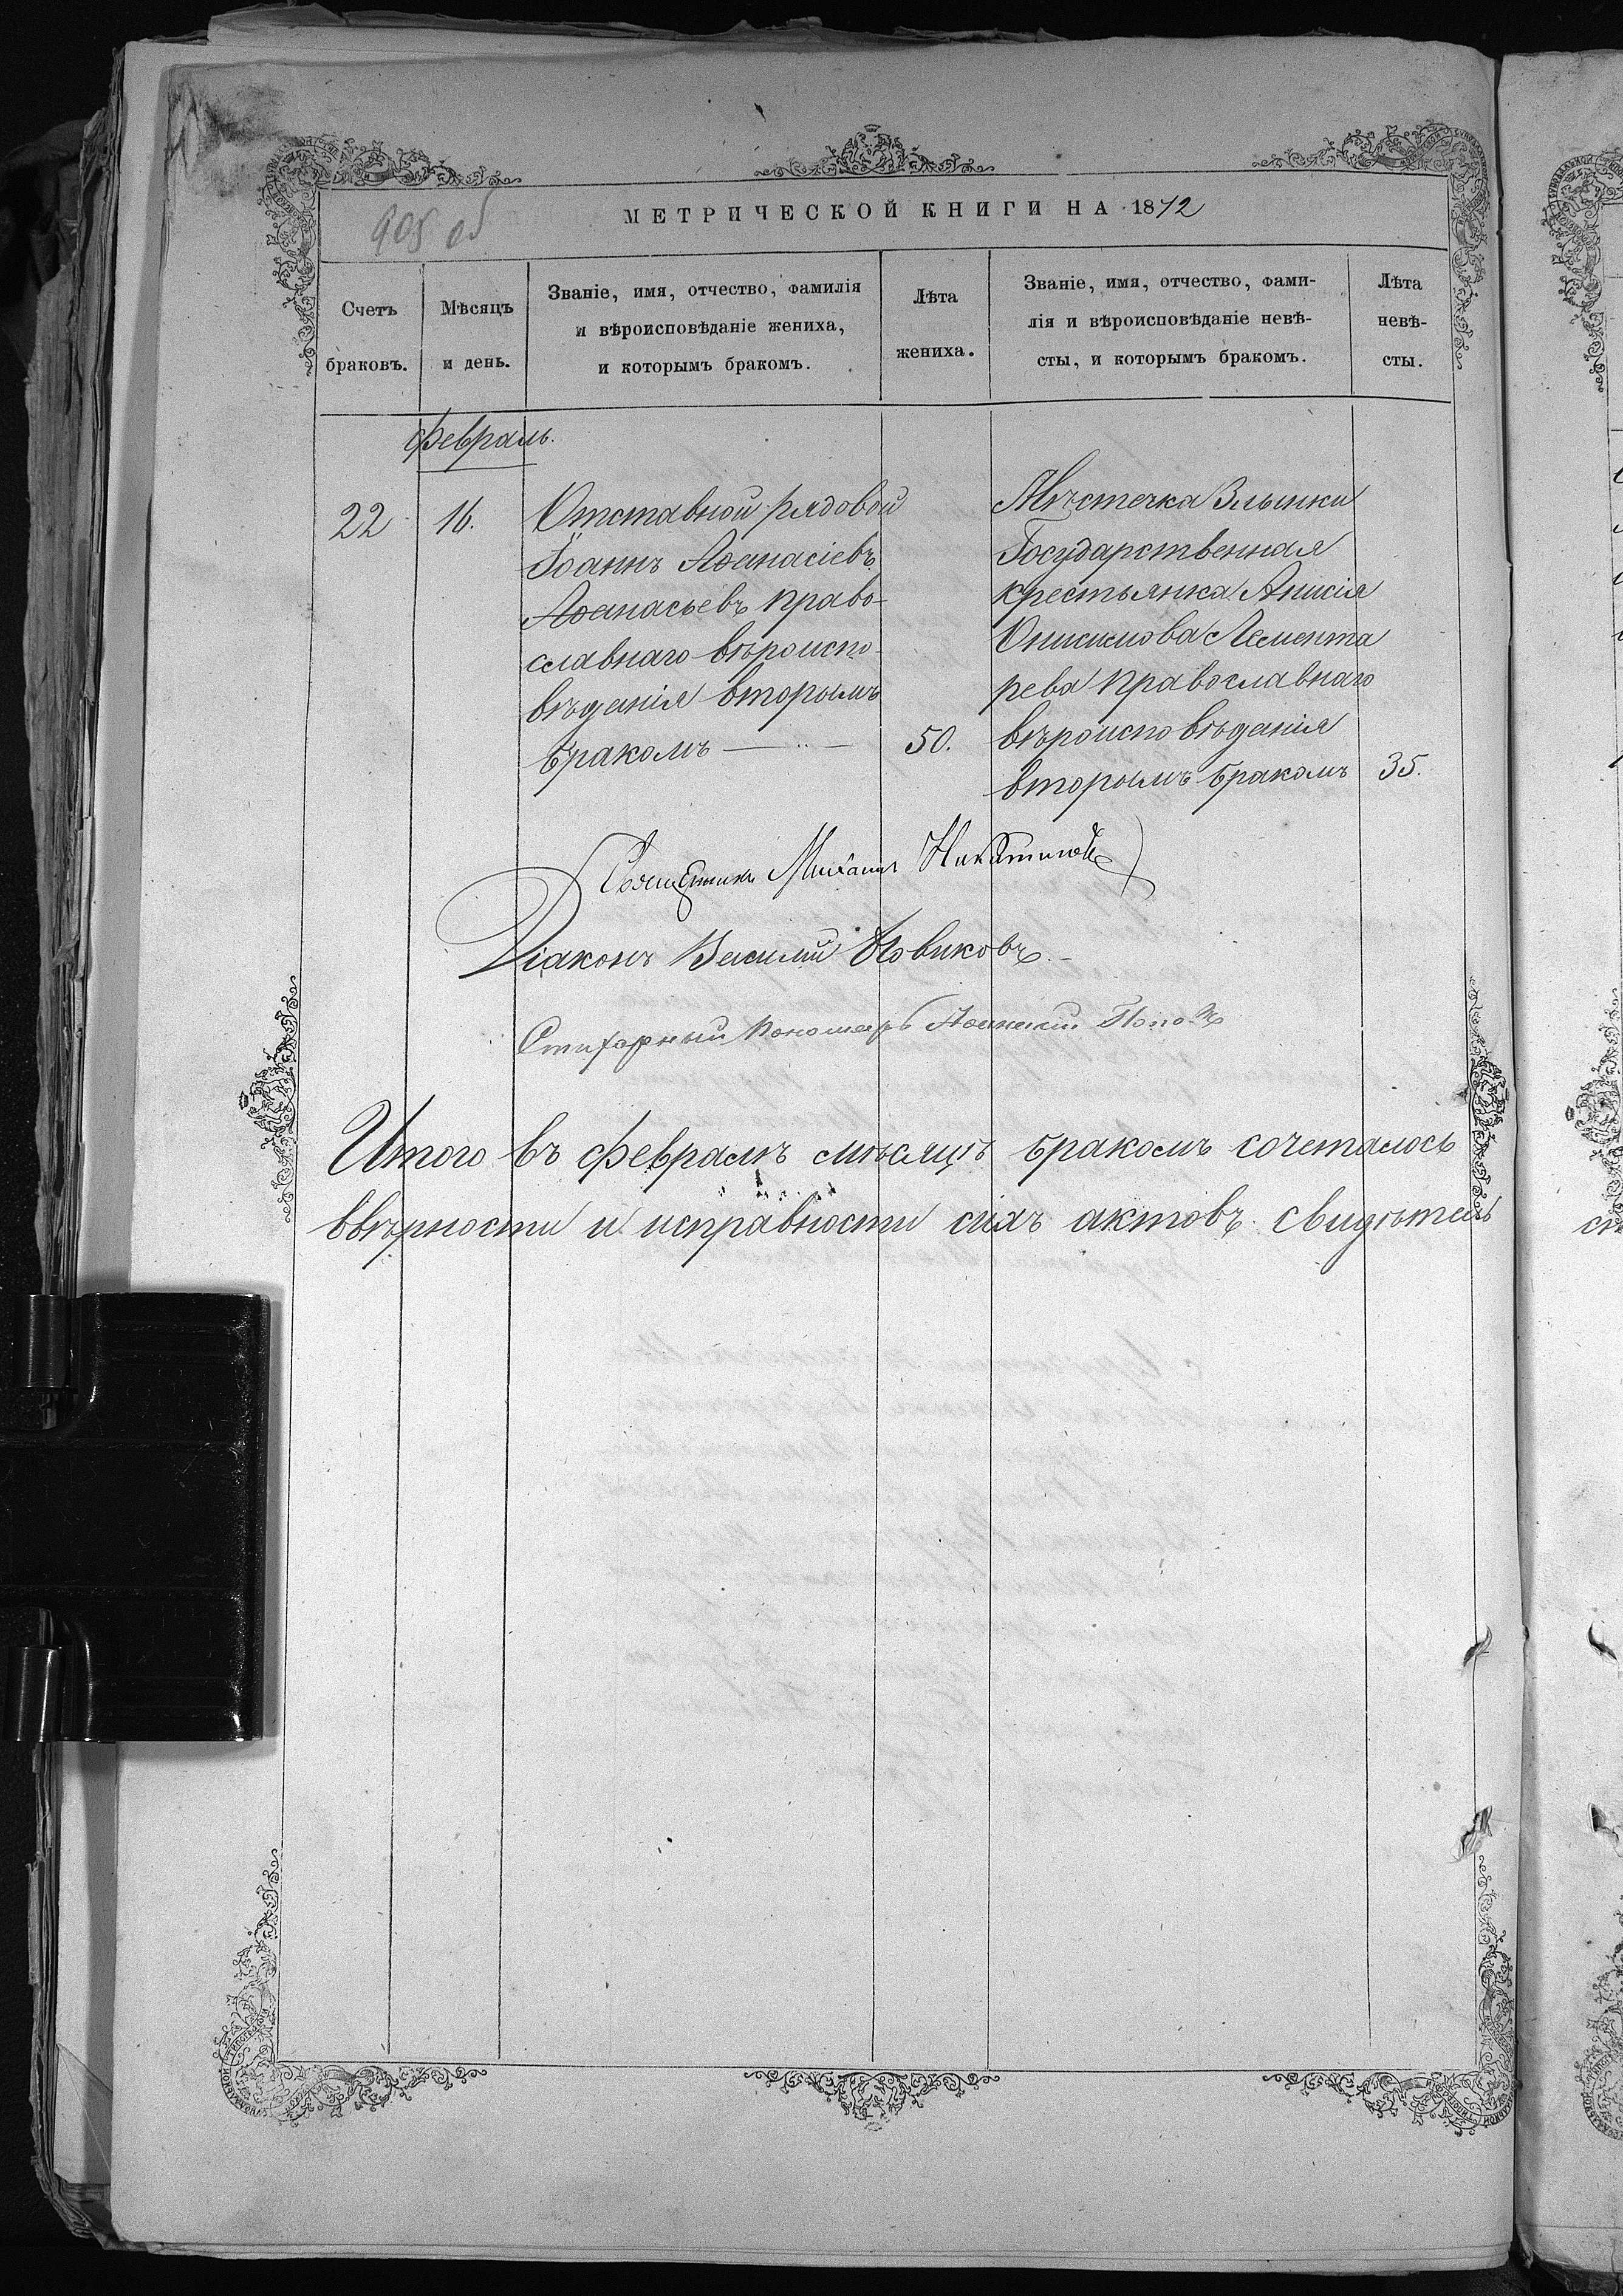 905 об
МЕТРИЧЕСКОЙ КНИГИ НА 1872
Счетъ браковъ.
Мѣсяцъ и день.
Званіе, имя, отчество, фамилія
и вѣроисповѣданіе жениха,
и которымъ бракомъ.
Лѣта
жениха.
Званіе, имя, отчество, фами-
лія и вѣроисповѣданіе невѣ-
сты, и которымъ бракомъ.
Лѣта
невѣ-
сты.
Февраль.
22 16.
Отставной рядовой
Іоаннъ Аѳанасіевъ
Аѳанасьевъ право-
славнаго вѣроиспо-
вѣданія вторымъ
бракомъ — 50.
Мѣстечка Злынки
Государственная
крестьянка Анисія
Онисимова Лемента
рева православнаго
вѣроисповѣданія
вторымъ бракомъ 35.
Священникъ Михаилъ
Діаконъ Василій Новиковъ
Стихарный Пономарь Поповъ
Итого въ Февралѣ мѣсяцѣ бракомъ сочеталось
ввѣрности и исправности сихъ актовъ свидѣтель